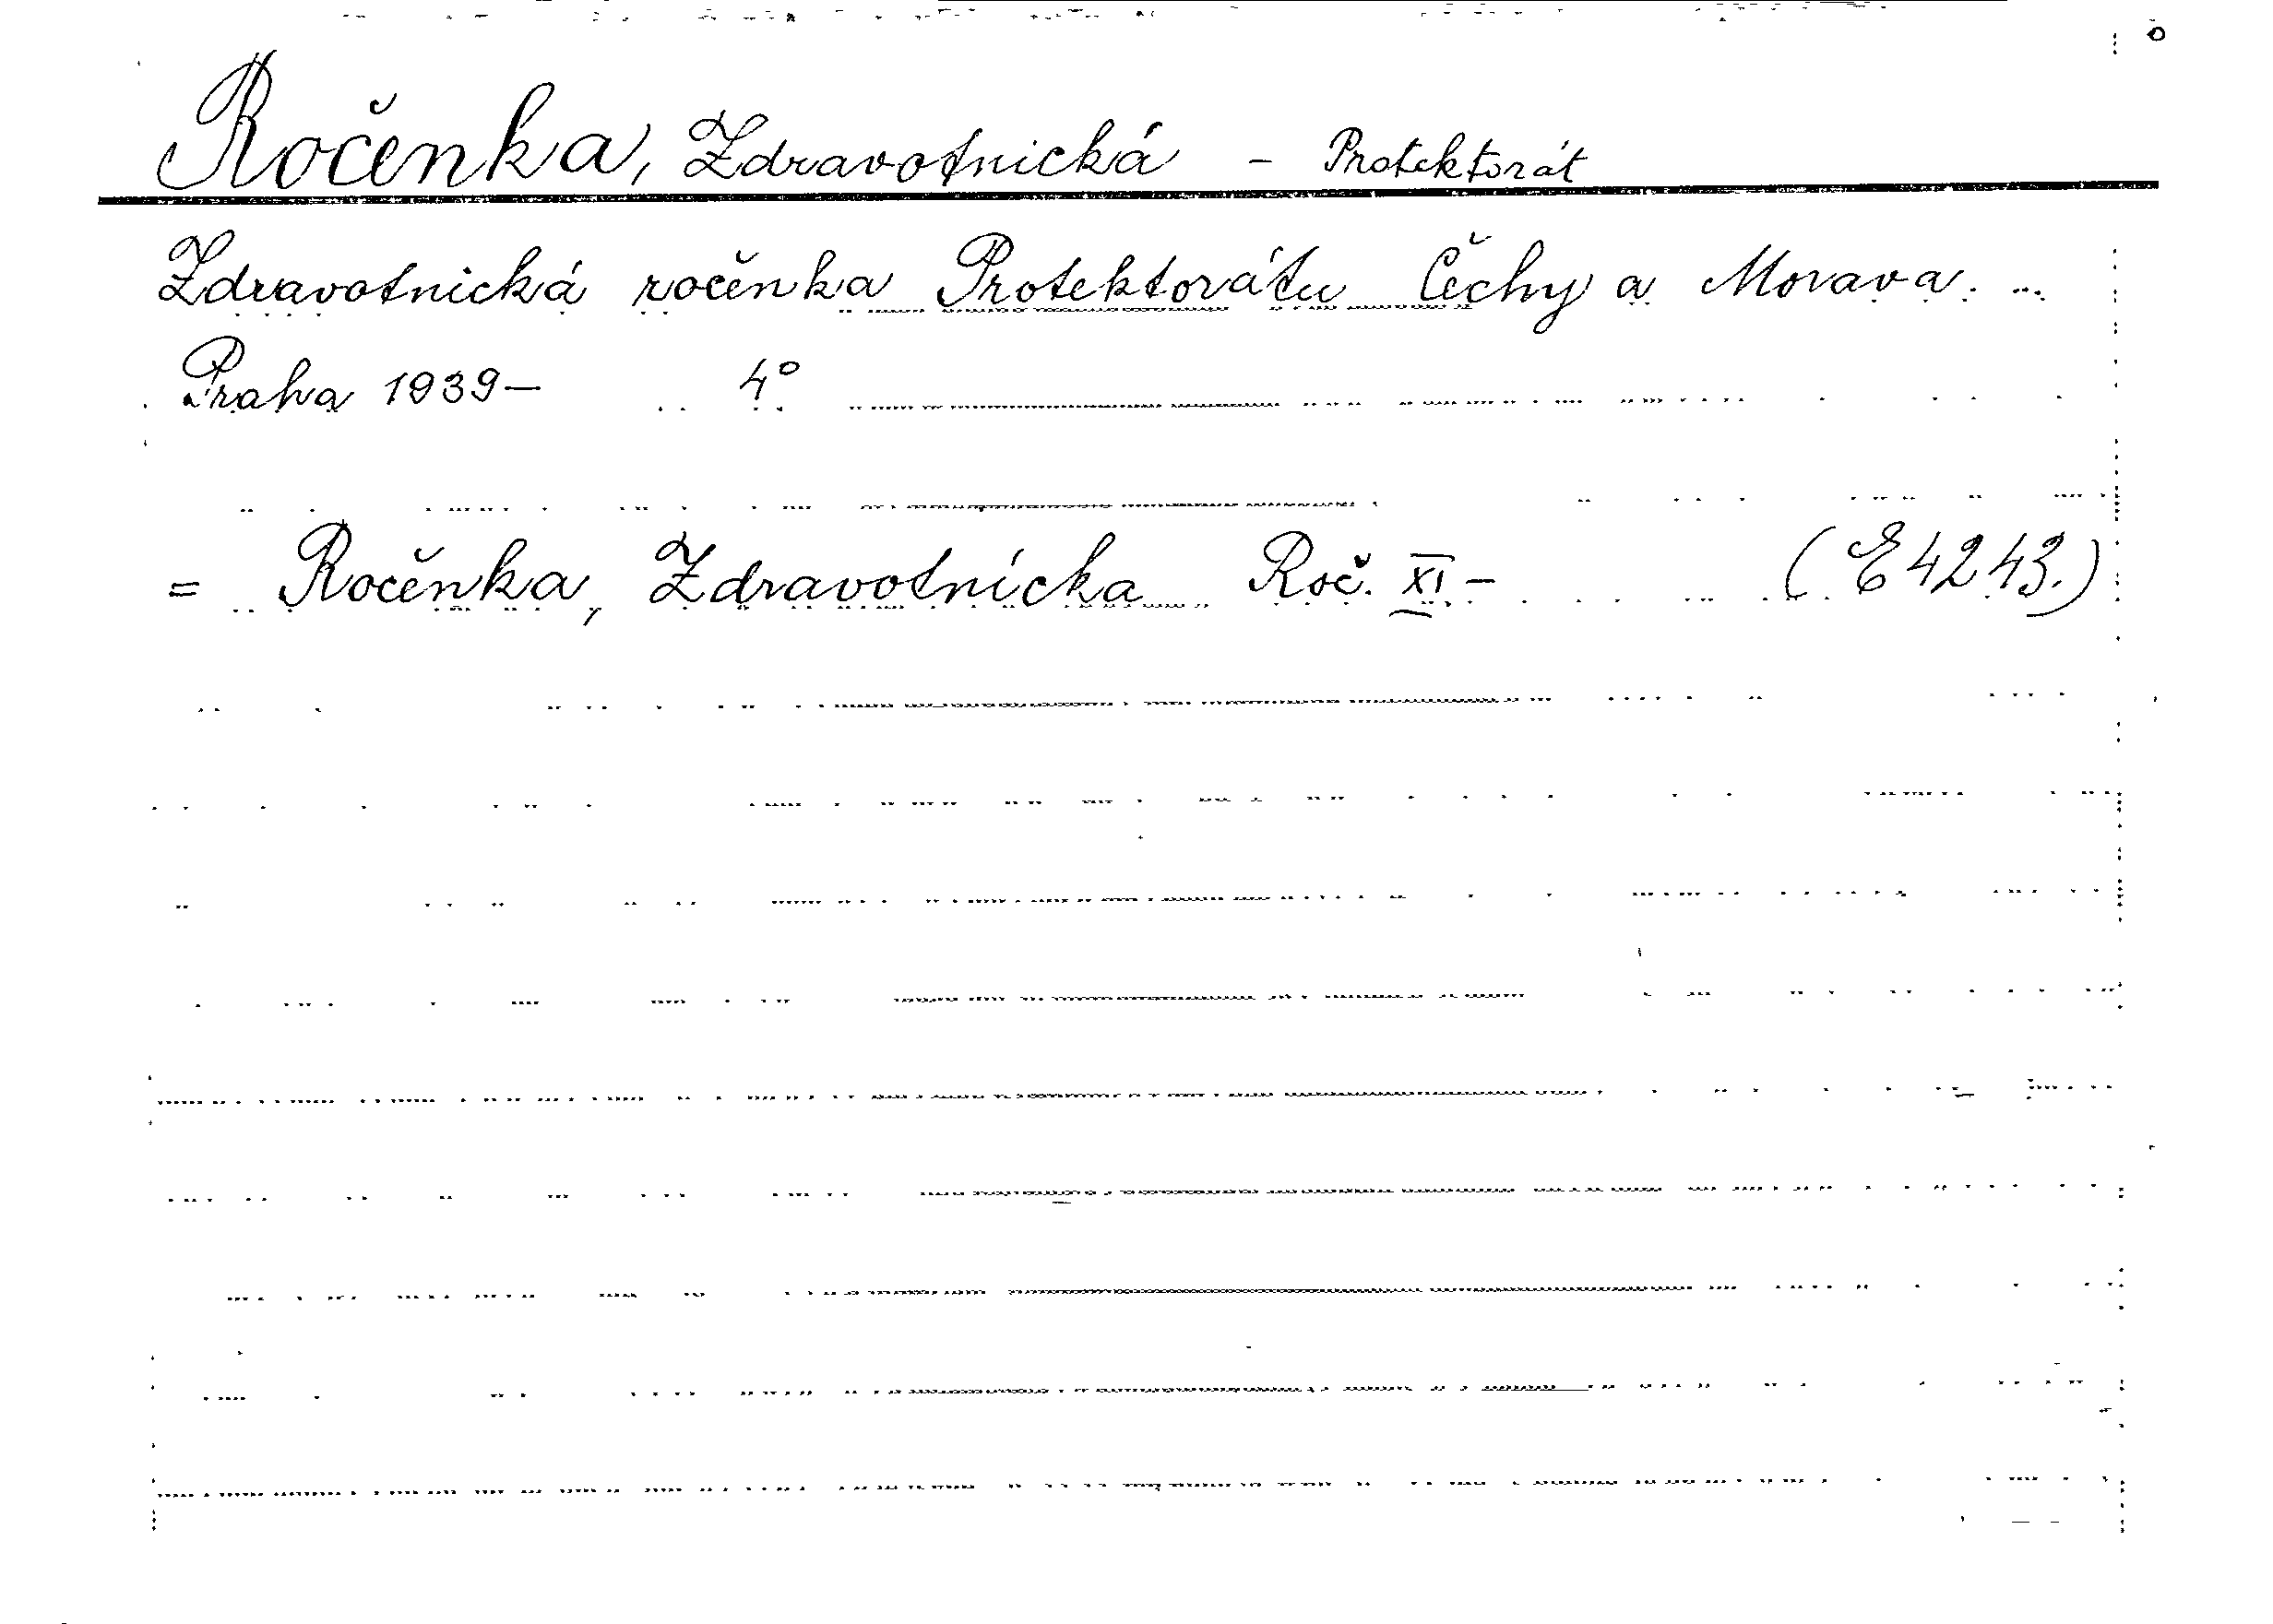 Ročenka, Zdravotnická - Protektorát
Zdravotnická ročenka Protektorátu Čechy a Morava. ...
Praha 1939— 4°
= Ročenka, Zdravotnícka Roč. XI — (E 4243.)